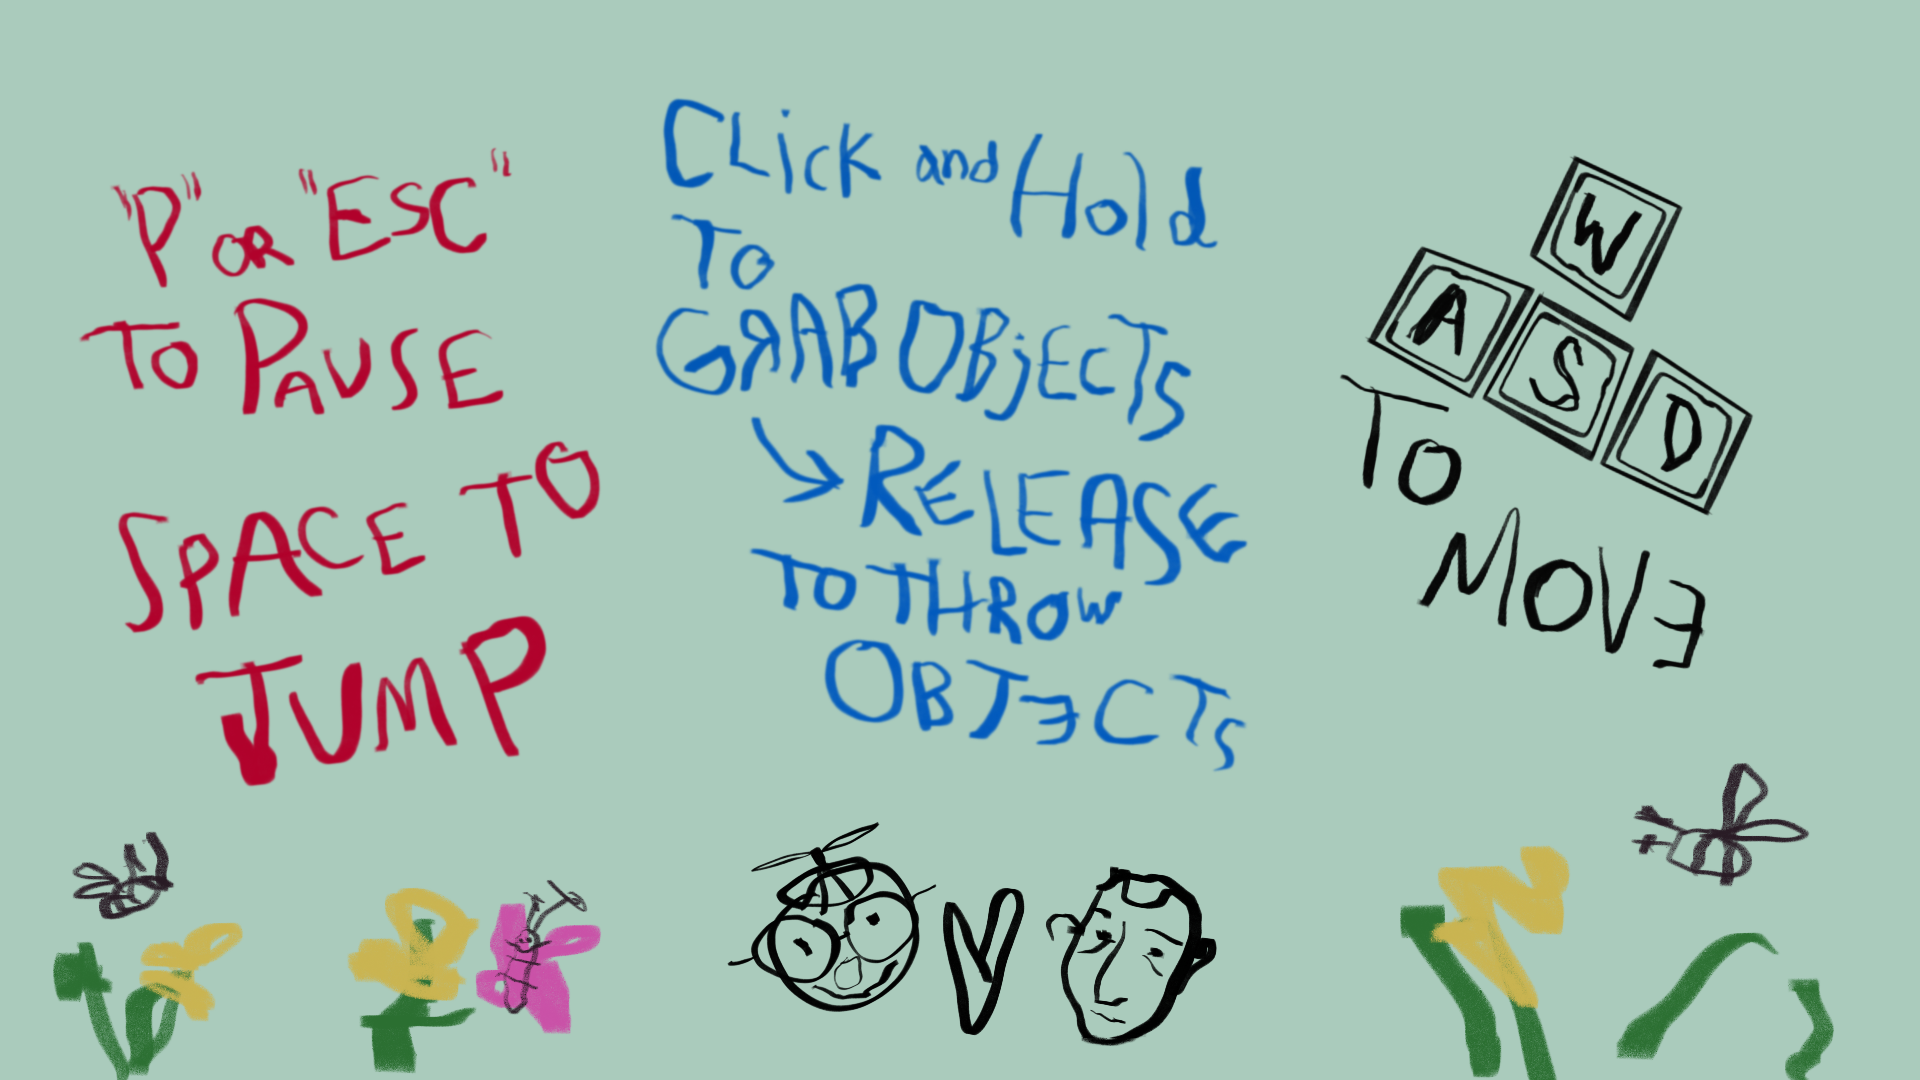 "P" OR "ESC"
TO PAUSE
SPACE TO
JUMP
CLiCK and Hold
TO
GRAB OBjECTS
RELEASE
TO THROW
OBJECTS
W
A S D
TO
MOVE
V